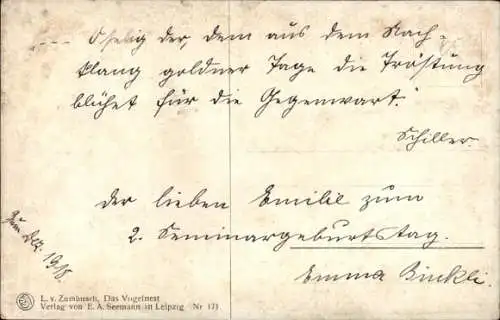 ---- O selig der, dem aus dem Nach-
klang goldner Tage die Tröstung
blühet für die Gegenwart."
Schiller.
Der lieben Emilie zum
2. Seminargeburtstag.
Emma Binkli.
Dez. 1918.
L. v. Zumbusch, Das Vogelnest
Verlag von E. A. Seemann in Leipzig Nr 171